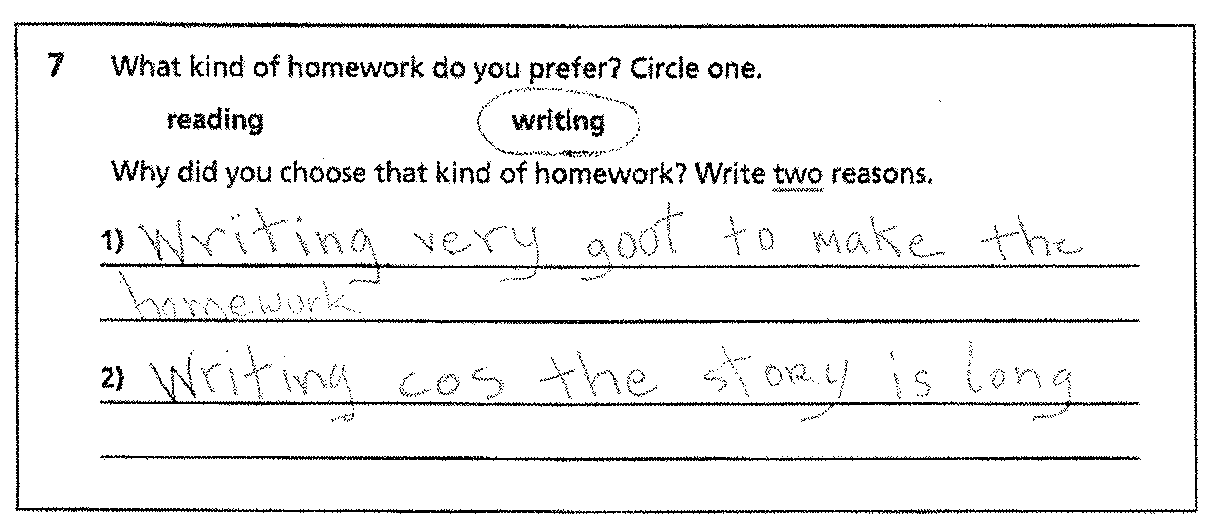 7 What kind of homework do you prefer? Circle one.
reading writing
Why did you choose that kind of homework? Write two reasons.
1) Writing very goot to make the
homework
2) Writing cos the story is long